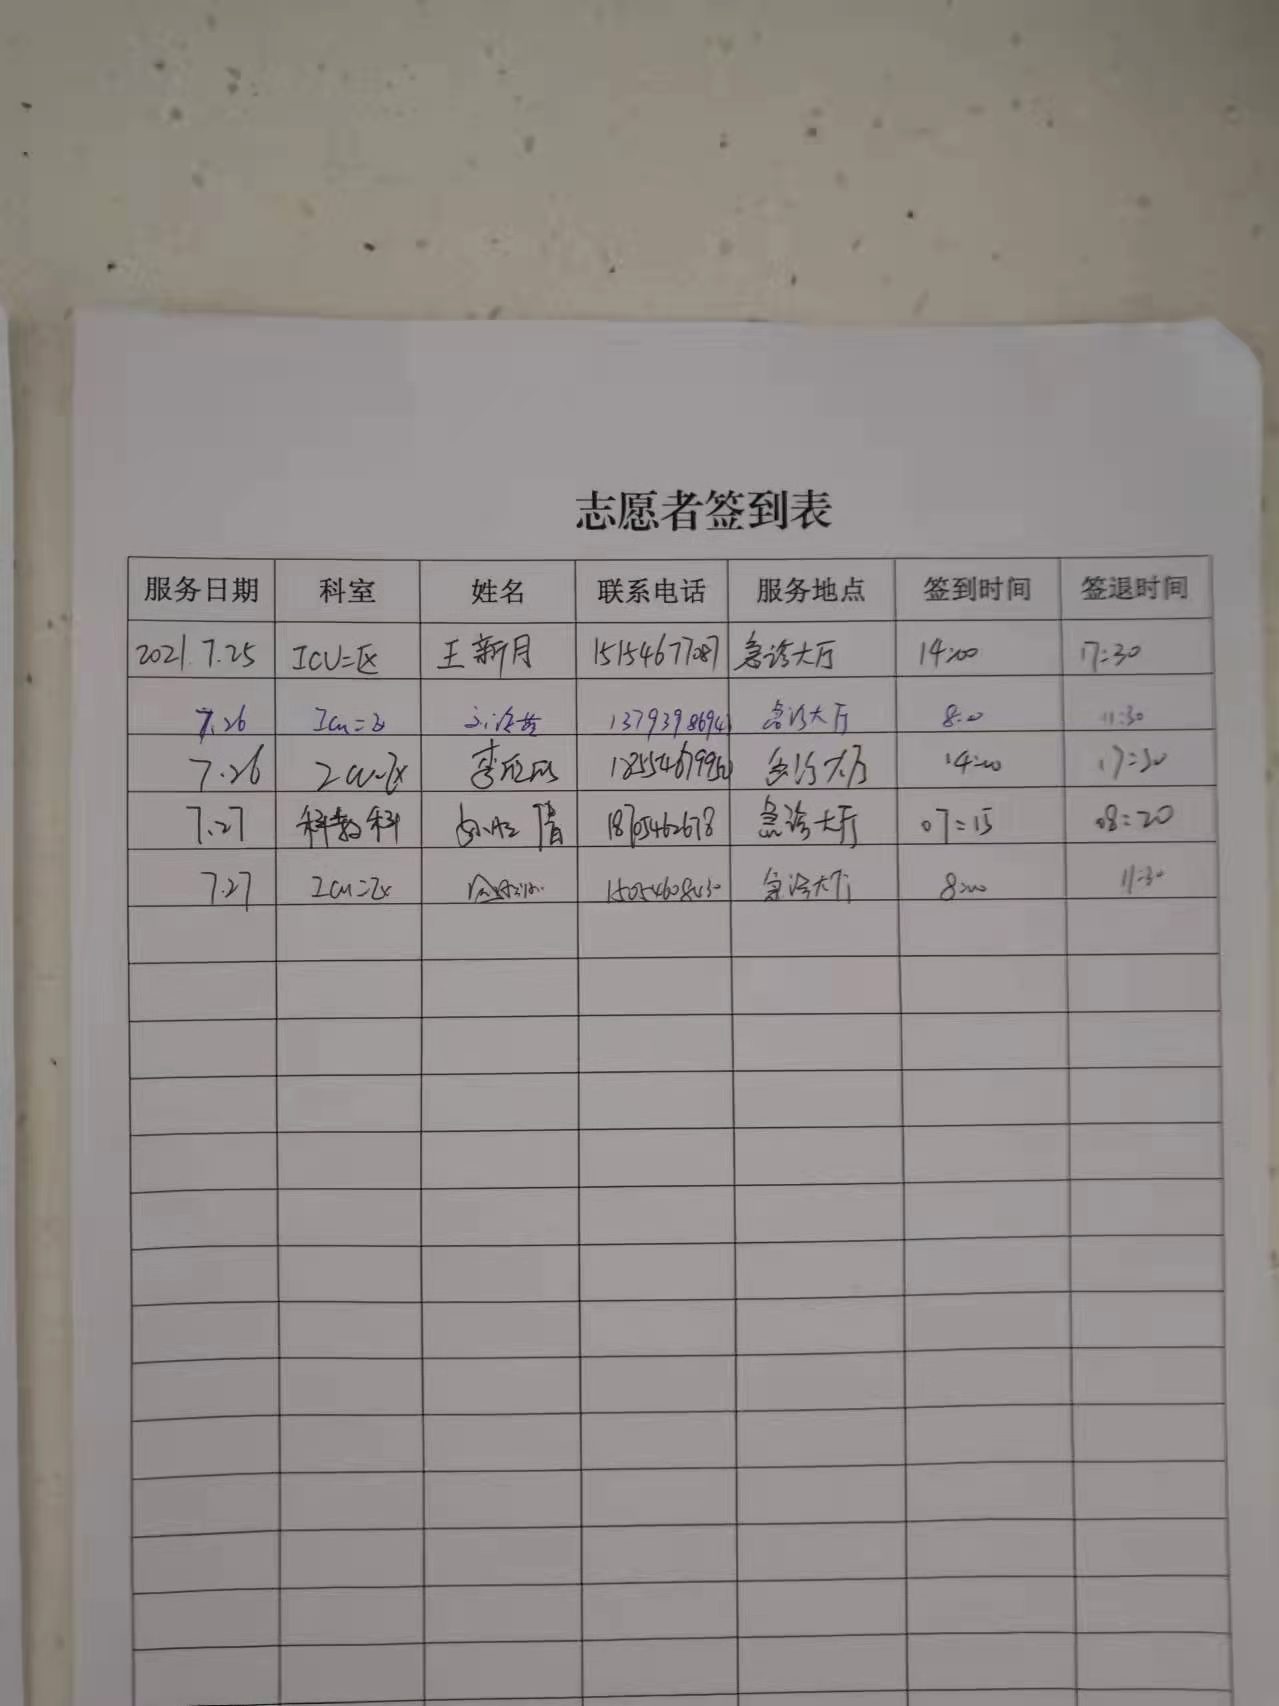 志愿者签到表
服务日期 科室 姓名 联系电话 服务地点 签到时间 签退时间
2021.7.25 ICU二区 王新月 15154677087 急诊大厅 14:00 17:30
7.26 Icu二区 1379398694 急诊大厅 8:00 11:30
7.26 Icu二区 李 急诊大厅 14:00 17:30
7.27 科教科 急诊大厅 07:15 08:20
7.27 Icu二区 急诊大厅 8:00 11:30